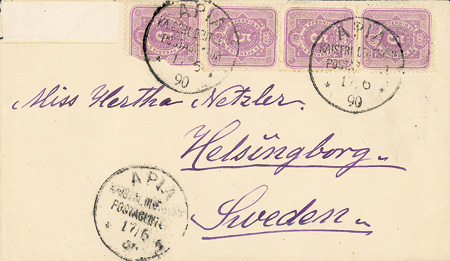 APIA
KAISERL. DEUTSCHE
POSTAGENTUR
17/6
90
APIA
KAISERL. DEUTSCHE
POSTAGENTUR
17/6
90
Miss Hertha Netzler.
Helsingborg
Sweden
APIA
KAISERL. DEUTSCHE
POSTAGENTUR
17/6
90